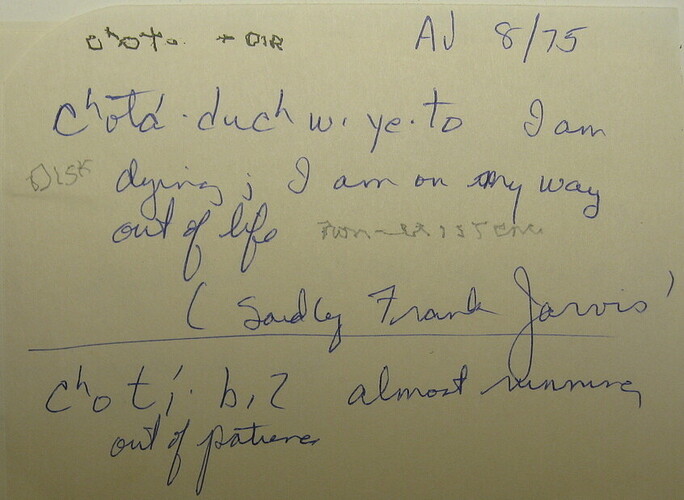 cʰoto. + DIR AJ 8/75
Cʰōtá·duch w, ye·to I am
DISK dying; I am on my way
out of life non-existence
(Said by Frank Jarvis)
cʰo t,́· b,2 almost running
out of patience